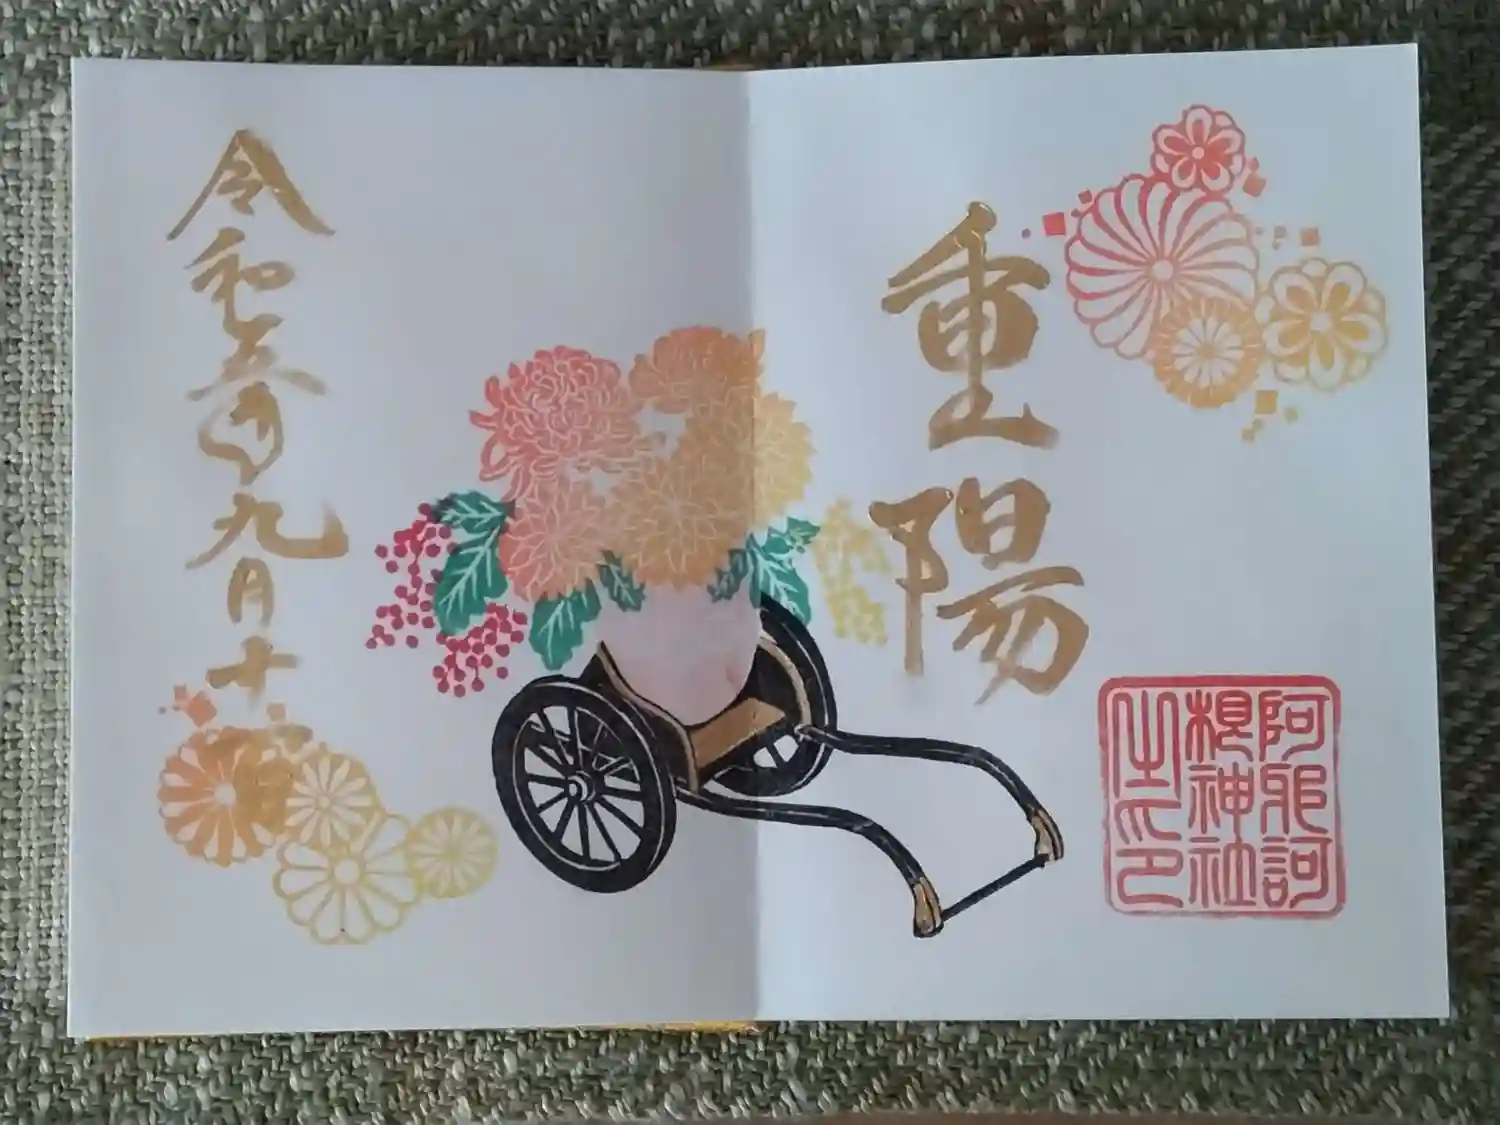 重陽
阿邪訶
根神社
之印
令和五年九月十